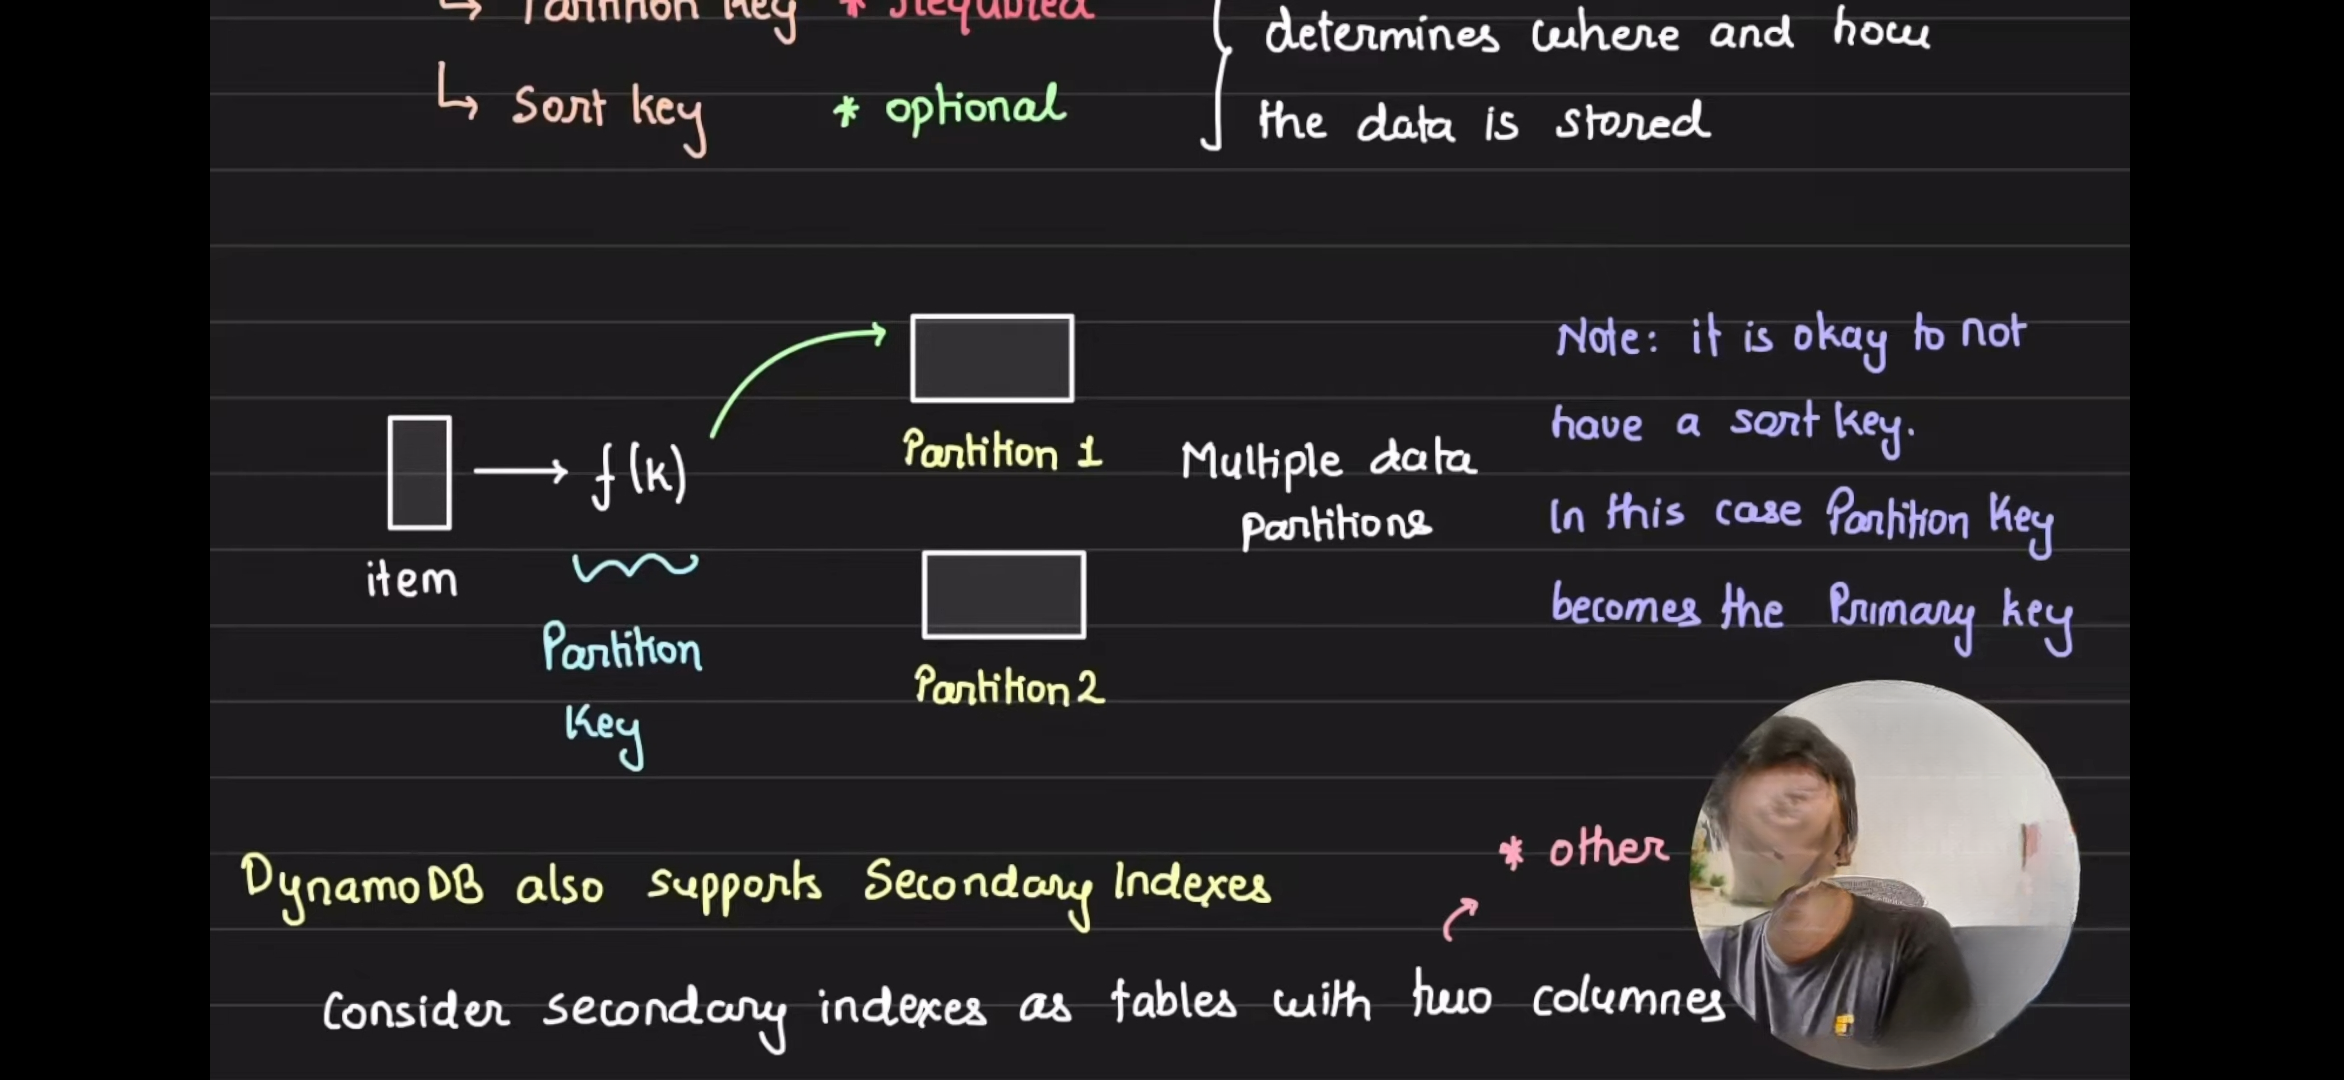 ↳ Partition Key * Required
↳ Sort key * optional
determines where and how
the data is stored
item
f(k)
Partition
Key
Partition 1
Partition 2
Multiple data
partitions
Note: it is okay to not
have a sort key.
In this case Partition Key
becomes the Primary key
DynamoDB also supports Secondary Indexes
* other
Consider secondary indexes as tables with two columns